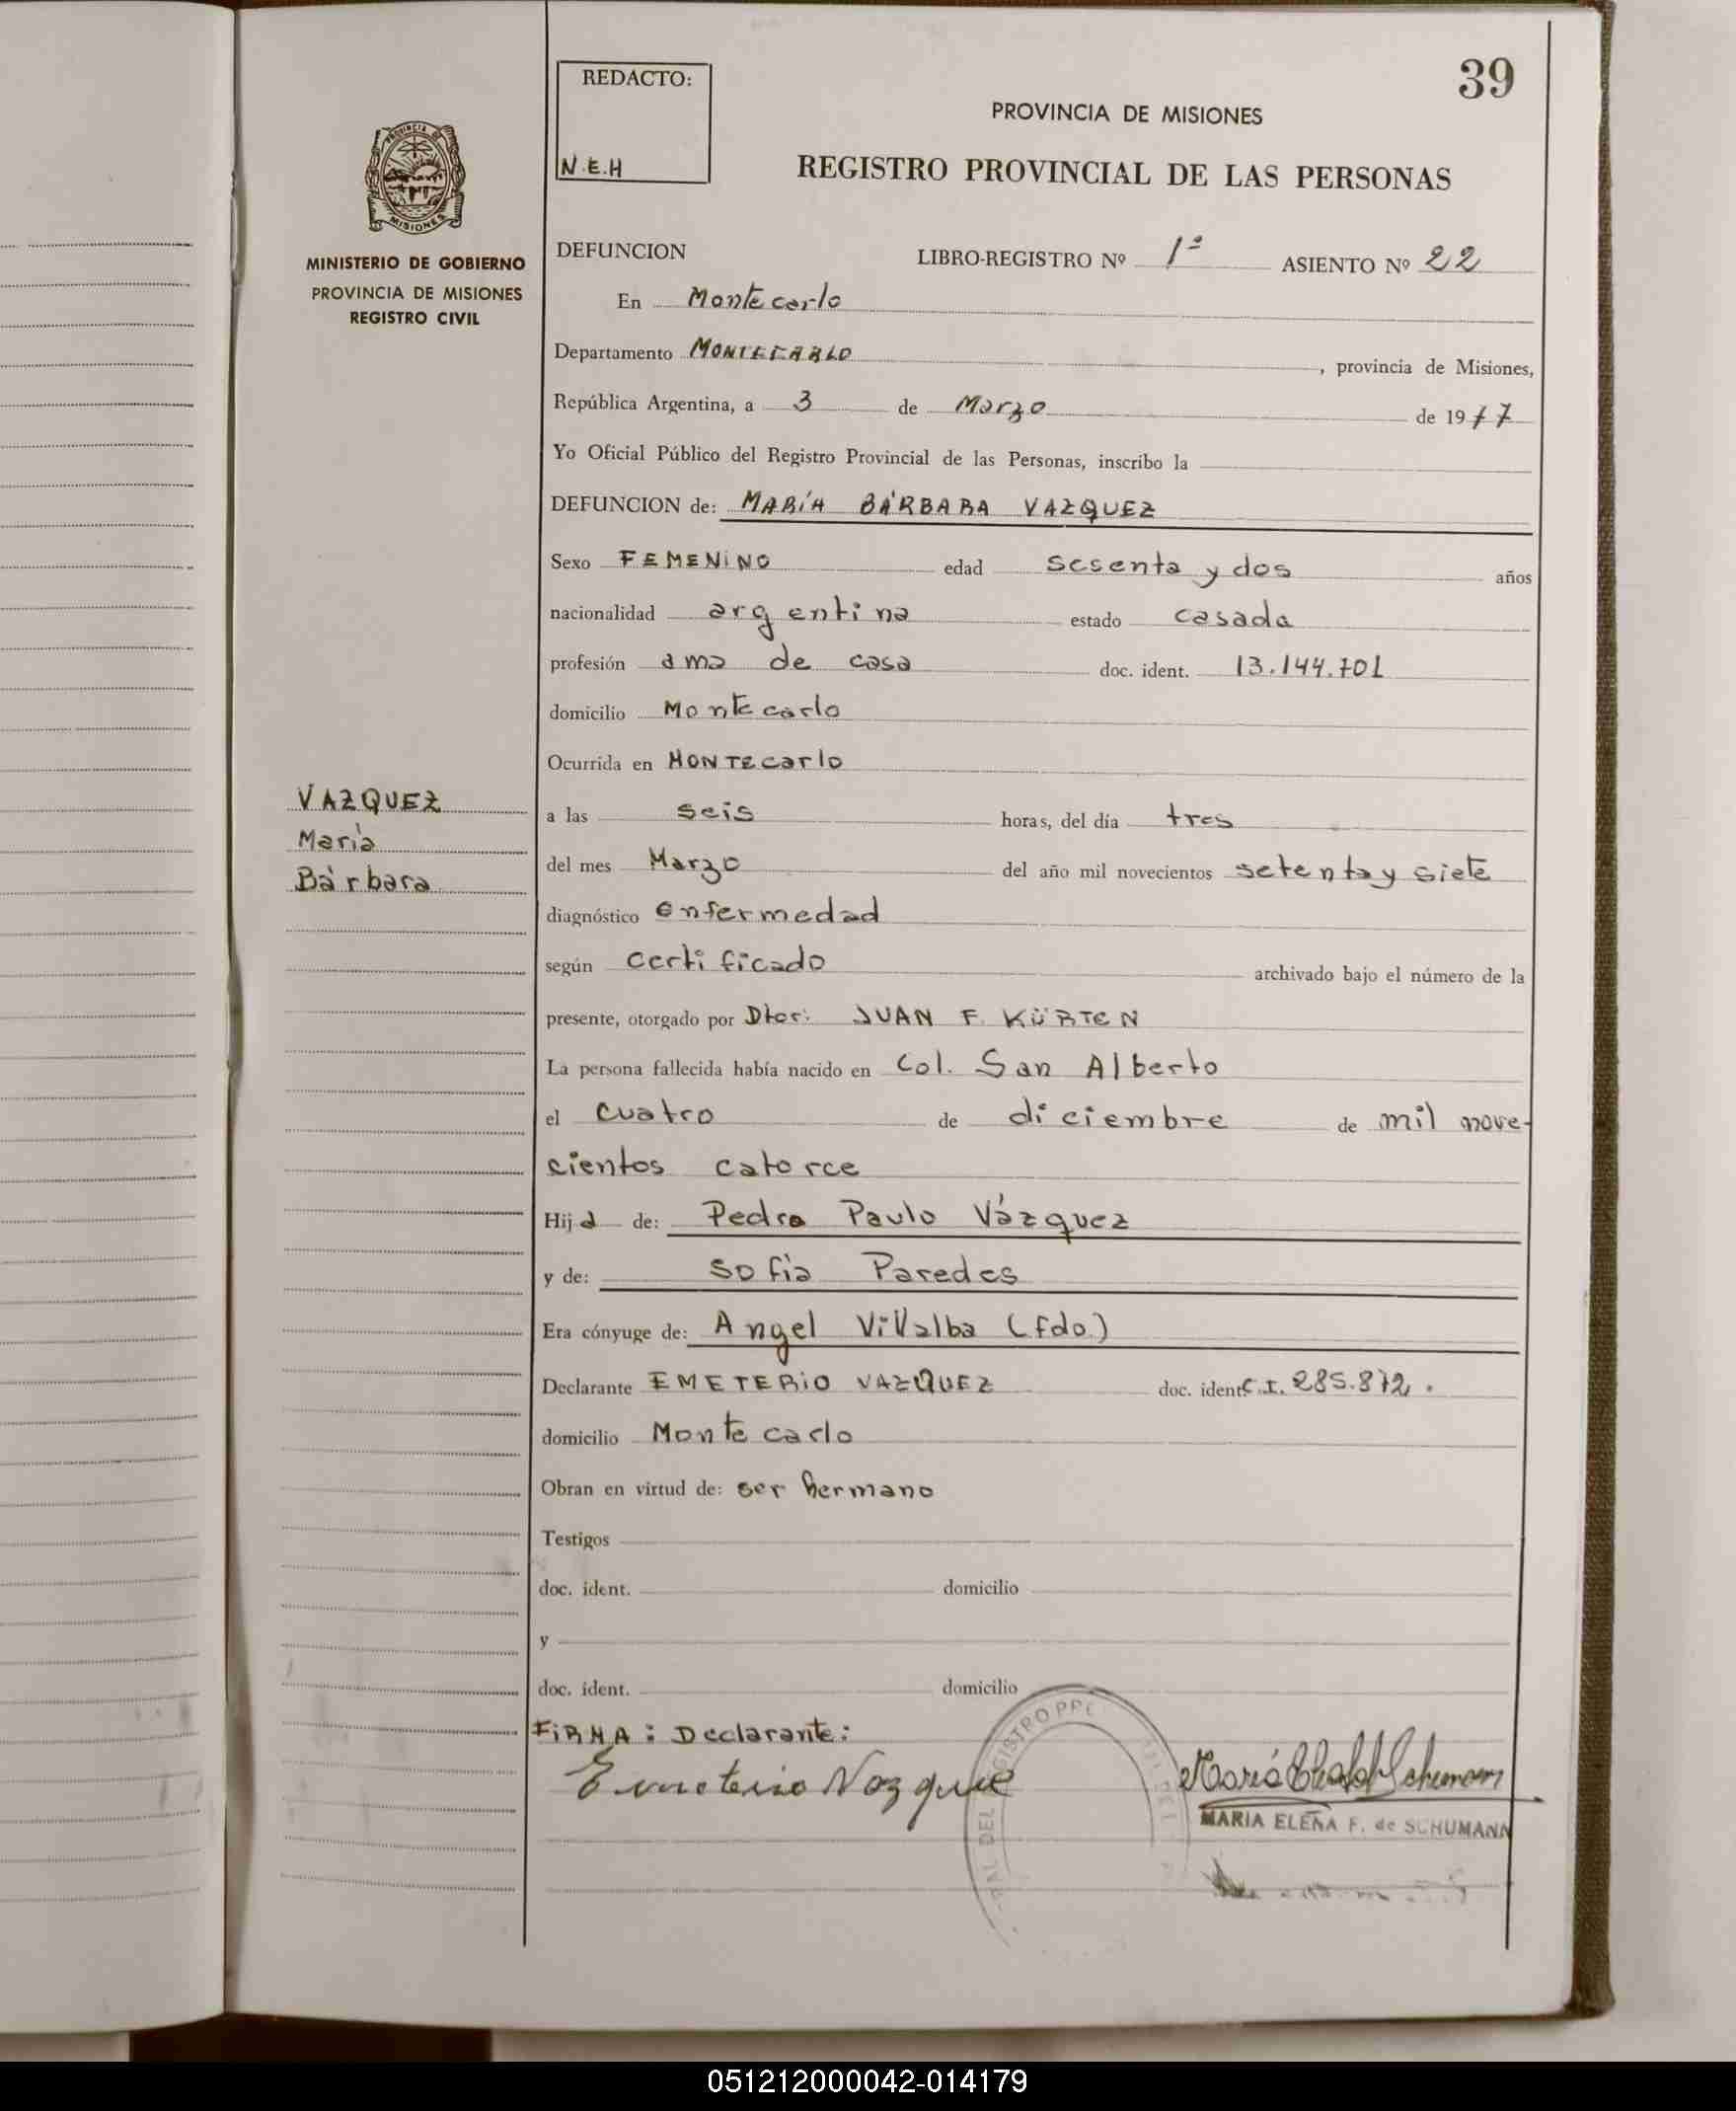 39
REDACTO:
N.E.H
PROVINCIA DE MISIONES
REGISTRO PROVINCIAL DE LAS PERSONAS
MINISTERIO DE GOBIERNO
PROVINCIA DE MISIONES
REGISTRO CIVIL
DEFUNCION LIBRO-REGISTRO Nº 1º ASIENTO Nº 22
En Montecarlo
Departamento MONTECARLO, provincia de Misiones,
República Argentina, a 3 de Marzo de 1977
Yo Oficial Público del Registro Provincial de las Personas, inscribo la
DEFUNCION de: MARÍA BÁRBARA VAZQUEZ
Sexo FEMENINO edad sesenta y dos años
nacionalidad argentina estado casada
profesión ama de casa doc. ident. 13.144.701
domicilio Montecarlo
Ocurrida en MONTECarlo
VAZQUEZ
María
Bárbara
a las seis horas, del día tres
del mes Marzo del año mil novecientos setenta y siete
diagnóstico enfermedad
según certificado archivado bajo el número de la
presente, otorgado por Dtor: JUAN F. KÜRTEN
La persona fallecida había nacido en Col. San Alberto
el cuatro de diciembre de mil nove-
cientos catorce
Hija de: Pedro Paulo Vázquez
y de: Sofía Paredes
Era cónyuge de: Angel Villalba (fdo.)
Declarante EMETERIO VAZQUEZ doc. ident C.I. 285.872.
domicilio Montecarlo
Obran en virtud de: ser hermano
Testigos
doc. ident. domicilio
y
doc. ident. domicilio
FIRMA: Declarante:
Emeterio Vazquez
MARIA ELENA F. de SCHUMANN
051212000042-014179